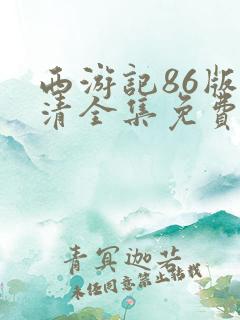 西游记86版
清全集免费
青冥迦若
未经同意禁止转载